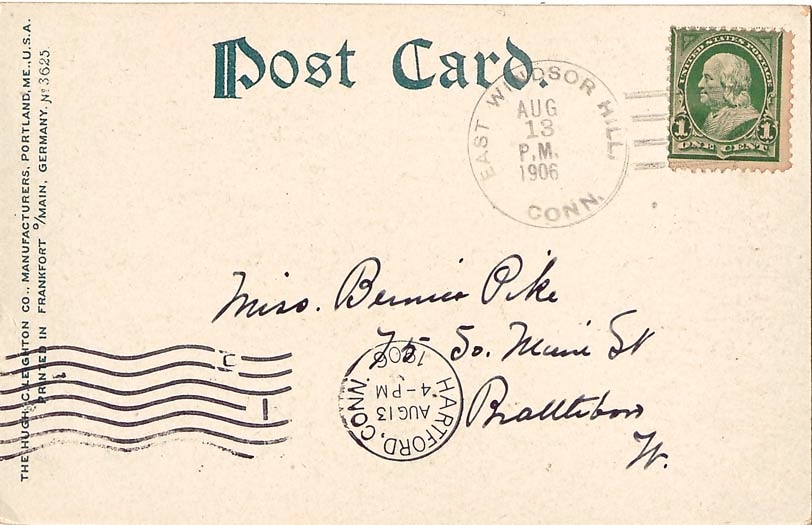 Post Card.
EAST WINDSOR HILL, CONN.
AUG
13
P.M.
1906
UNITED STATES POSTAGE
1 1
ONE CENT
Miss. Bernice Pike
75 So. Main St
Brattleboro
Vt.
HARTFORD, CONN.
AUG 13
4-PM
1906
THE HUGH C. LEIGHTON CO., MANUFACTURERS, PORTLAND, ME., U.S.A.
PRINTED IN FRANKFORT o/MAIN, GERMANY. No 3625.